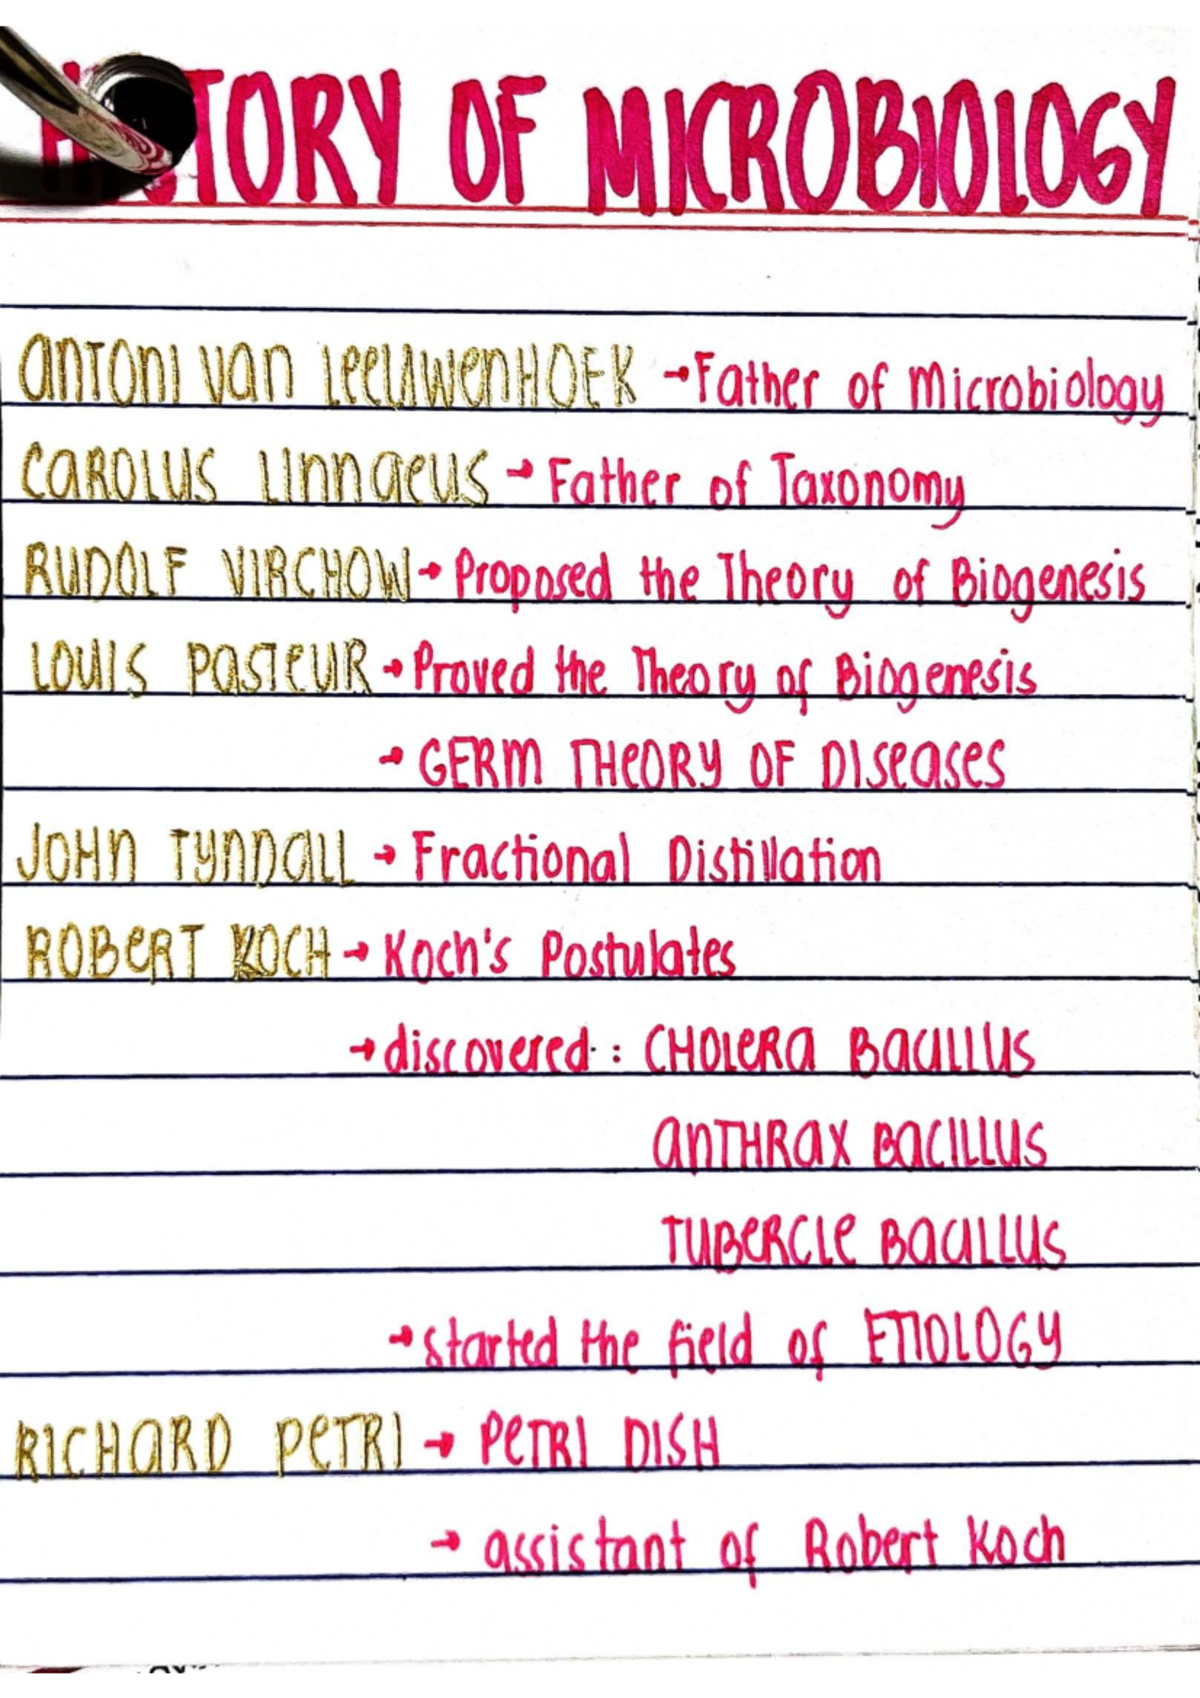 HISTORY OF MICROBIOLOGY
ANTONI VAN LEEUWENHOEK → Father of Microbiology
CAROLUS LINNAEUS → Father of Taxonomy
RUDOLF VIRCHOW → Proposed the Theory of Biogenesis
LOUIS PASTEUR → Proved the Theory of Biogenesis
→ GERM THEORY OF DISEASES
JOHN TYNDALL → Fractional Distillation
ROBERT KOCH → Koch's Postulates
→ discovered : CHOLERA BACILLUS
ANTHRAX BACILLUS
TUBERCLE BACILLUS
→ started the field of ETIOLOGY
RICHARD PETRI → PETRI DISH
→ assistant of Robert Koch